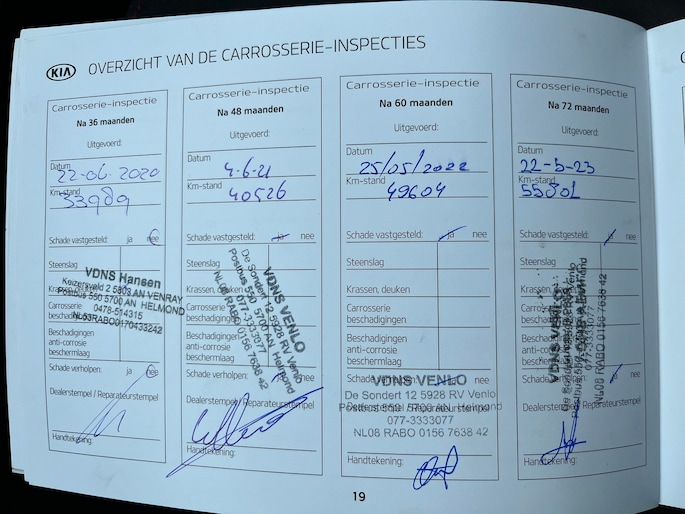 KIA OVERZICHT VAN DE CARROSSERIE-INSPECTIES
Carrosserie-inspectie
Na 36 maanden
Uitgevoerd:
Datum
22-06-2020
Km-stand
33989
Schade vastgesteld: ja nee
Steenslag
Krassen, deuken
Carrosserie
beschadigingen
Beschadigingen
anti-corrosie
beschermlaag
Schade verholpen: ja nee
Dealerstempel / Reparateurstempel
Handtekening:
VDNS Hansen
Keizersveld 2 5803 AN VENRAY
Postbus 550 5700 AN HELMOND
0478-514315
NL53RABO0170433242
Carrosserie-inspectie
Na 48 maanden
Uitgevoerd:
Datum
4-6-21
Km-stand
40526
Schade vastgesteld: ja nee
Steenslag
Krassen, deuken
Carrosserie
beschadigingen
Beschadigingen
anti-corrosie
beschermlaag
Schade verholpen: nee
Dealerstempel / Reparateurstempel
Handtekening:
VDNS VENLO
De Sondert 12 5928 RV Venlo
Postbus 550 5700 AN Helmond
077-3333077
NL08 RABO 0156 7638 42
Carrosserie-inspectie
Na 60 maanden
Uitgevoerd:
Datum
25/05/2022
Km-stand
49604
Schade vastgesteld: ja nee
Steenslag
Krassen, deuken
Carrosserie
beschadigingen
Beschadigingen
anti-corrosie
beschermlaag
Schade verholpen: ja nee
Dealerstempel / Reparateurstempel
Handtekening:
VDNS VENLO
De Sondert 12 5928 RV Venlo
Postbus 550 5700 AN Helmond
077-3333077
NL08 RABO 0156 7638 42
Carrosserie-inspectie
Na 72 maanden
Uitgevoerd:
Datum
22-5-23
Km-stand
Schade vastgesteld: ja nee
Steenslag
Krassen, deuken
Carrosserie
beschadigingen
Beschadigingen
anti-corrosie
beschermlaag
Schade verholpen: ja nee
Dealerstempel / Reparateurstempel
Handtekening:
VDNS VENLO
077-3333077
NL08 RABO 0156 7638 42
19